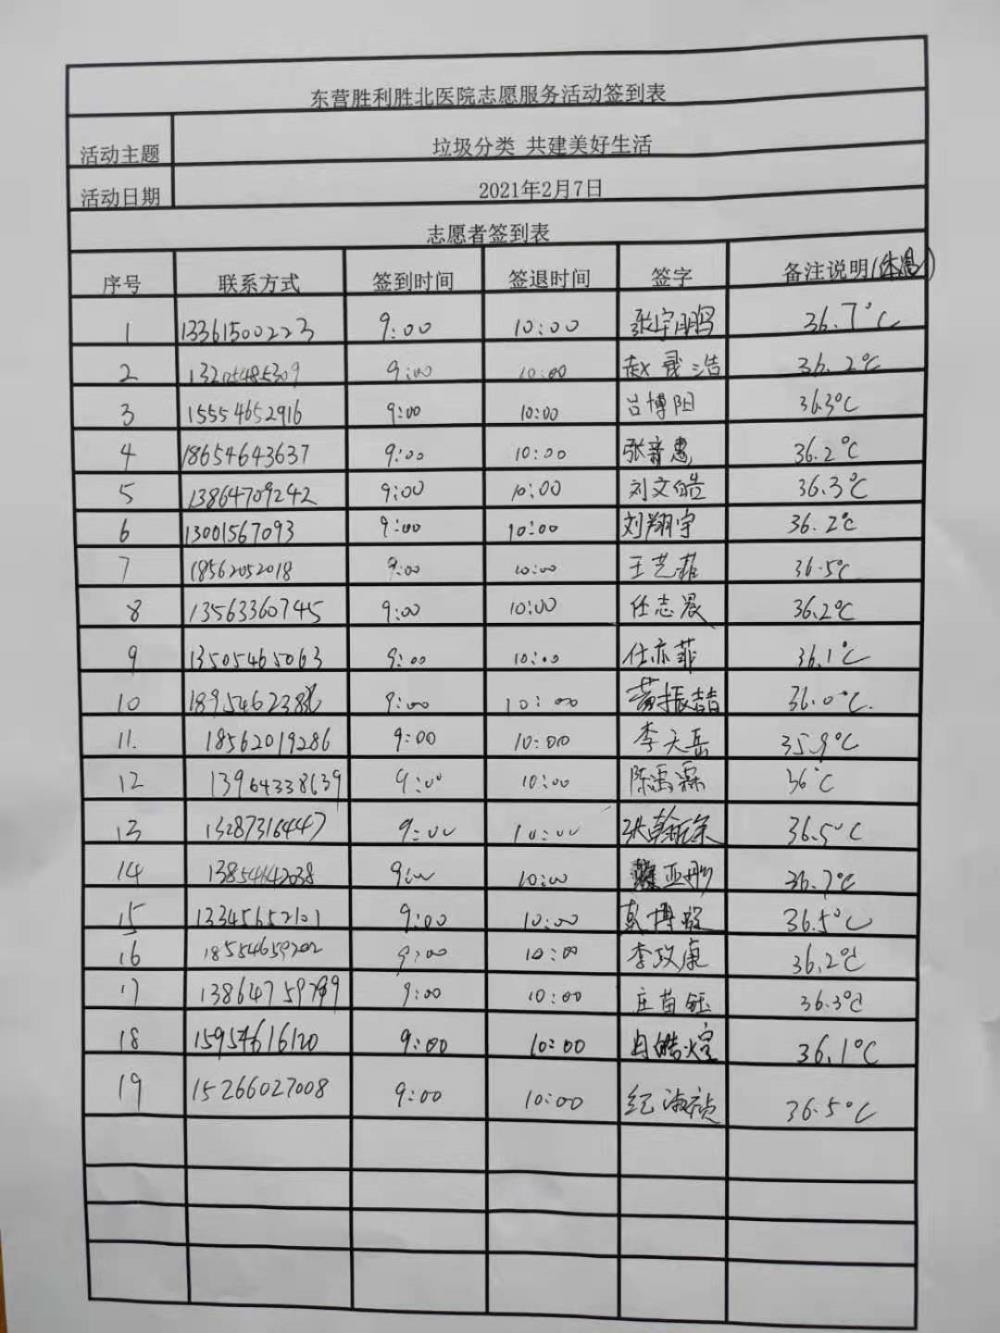 东营胜利胜北医院志愿服务活动签到表
活动主题 垃圾分类 共建美好生活
活动日期 2021年2月7日
志愿者签到表
序号 联系方式 签到时间 签退时间 签字 备注说明(体温)
1 13361500223 9:00 10:00 张宇鹏 36.7°C
2 9:00 10:00 赵晟浩 36.2°C
3 15554652916 9:00 10:00 吕博阳 36.3°C
4 18654643637 9:00 10:00 张音惠 36.2°C
5 13864709242 9:00 10:00 刘文皓 36.3°C
6 13001567093 9:00 10:00 刘翔宇 36.2°C
7 18562052018 9:00 10:00 王艺菲 36.5°C
8 13563360745 9:00 10:00 任志晟 36.2°C
9 13505465063 9:00 10:00 任亦菲 36.1°C
10 9:00 10:00 振喆 36.0°C.
11. 18562019286 9:00 10:00 李天岳 35.9°C
12 13964338639 9:00 10:00 陈禹霖 36°C
13 13287316447 9:00 10:00 张 36.5°C
14 9:00 10:00 亚彤 36.7°C
15 13345652101 9:00 10:00 博 36.5°C
16 18554659202 9:00 10:00 李政康 36.2°C
17 9:00 10:00 庄苗钰 36.3°C
18 15954616120 9:00 10:00 皓煊 36.1°C
19 15266027008 9:00 10:00 纪淑祯 36.5°C